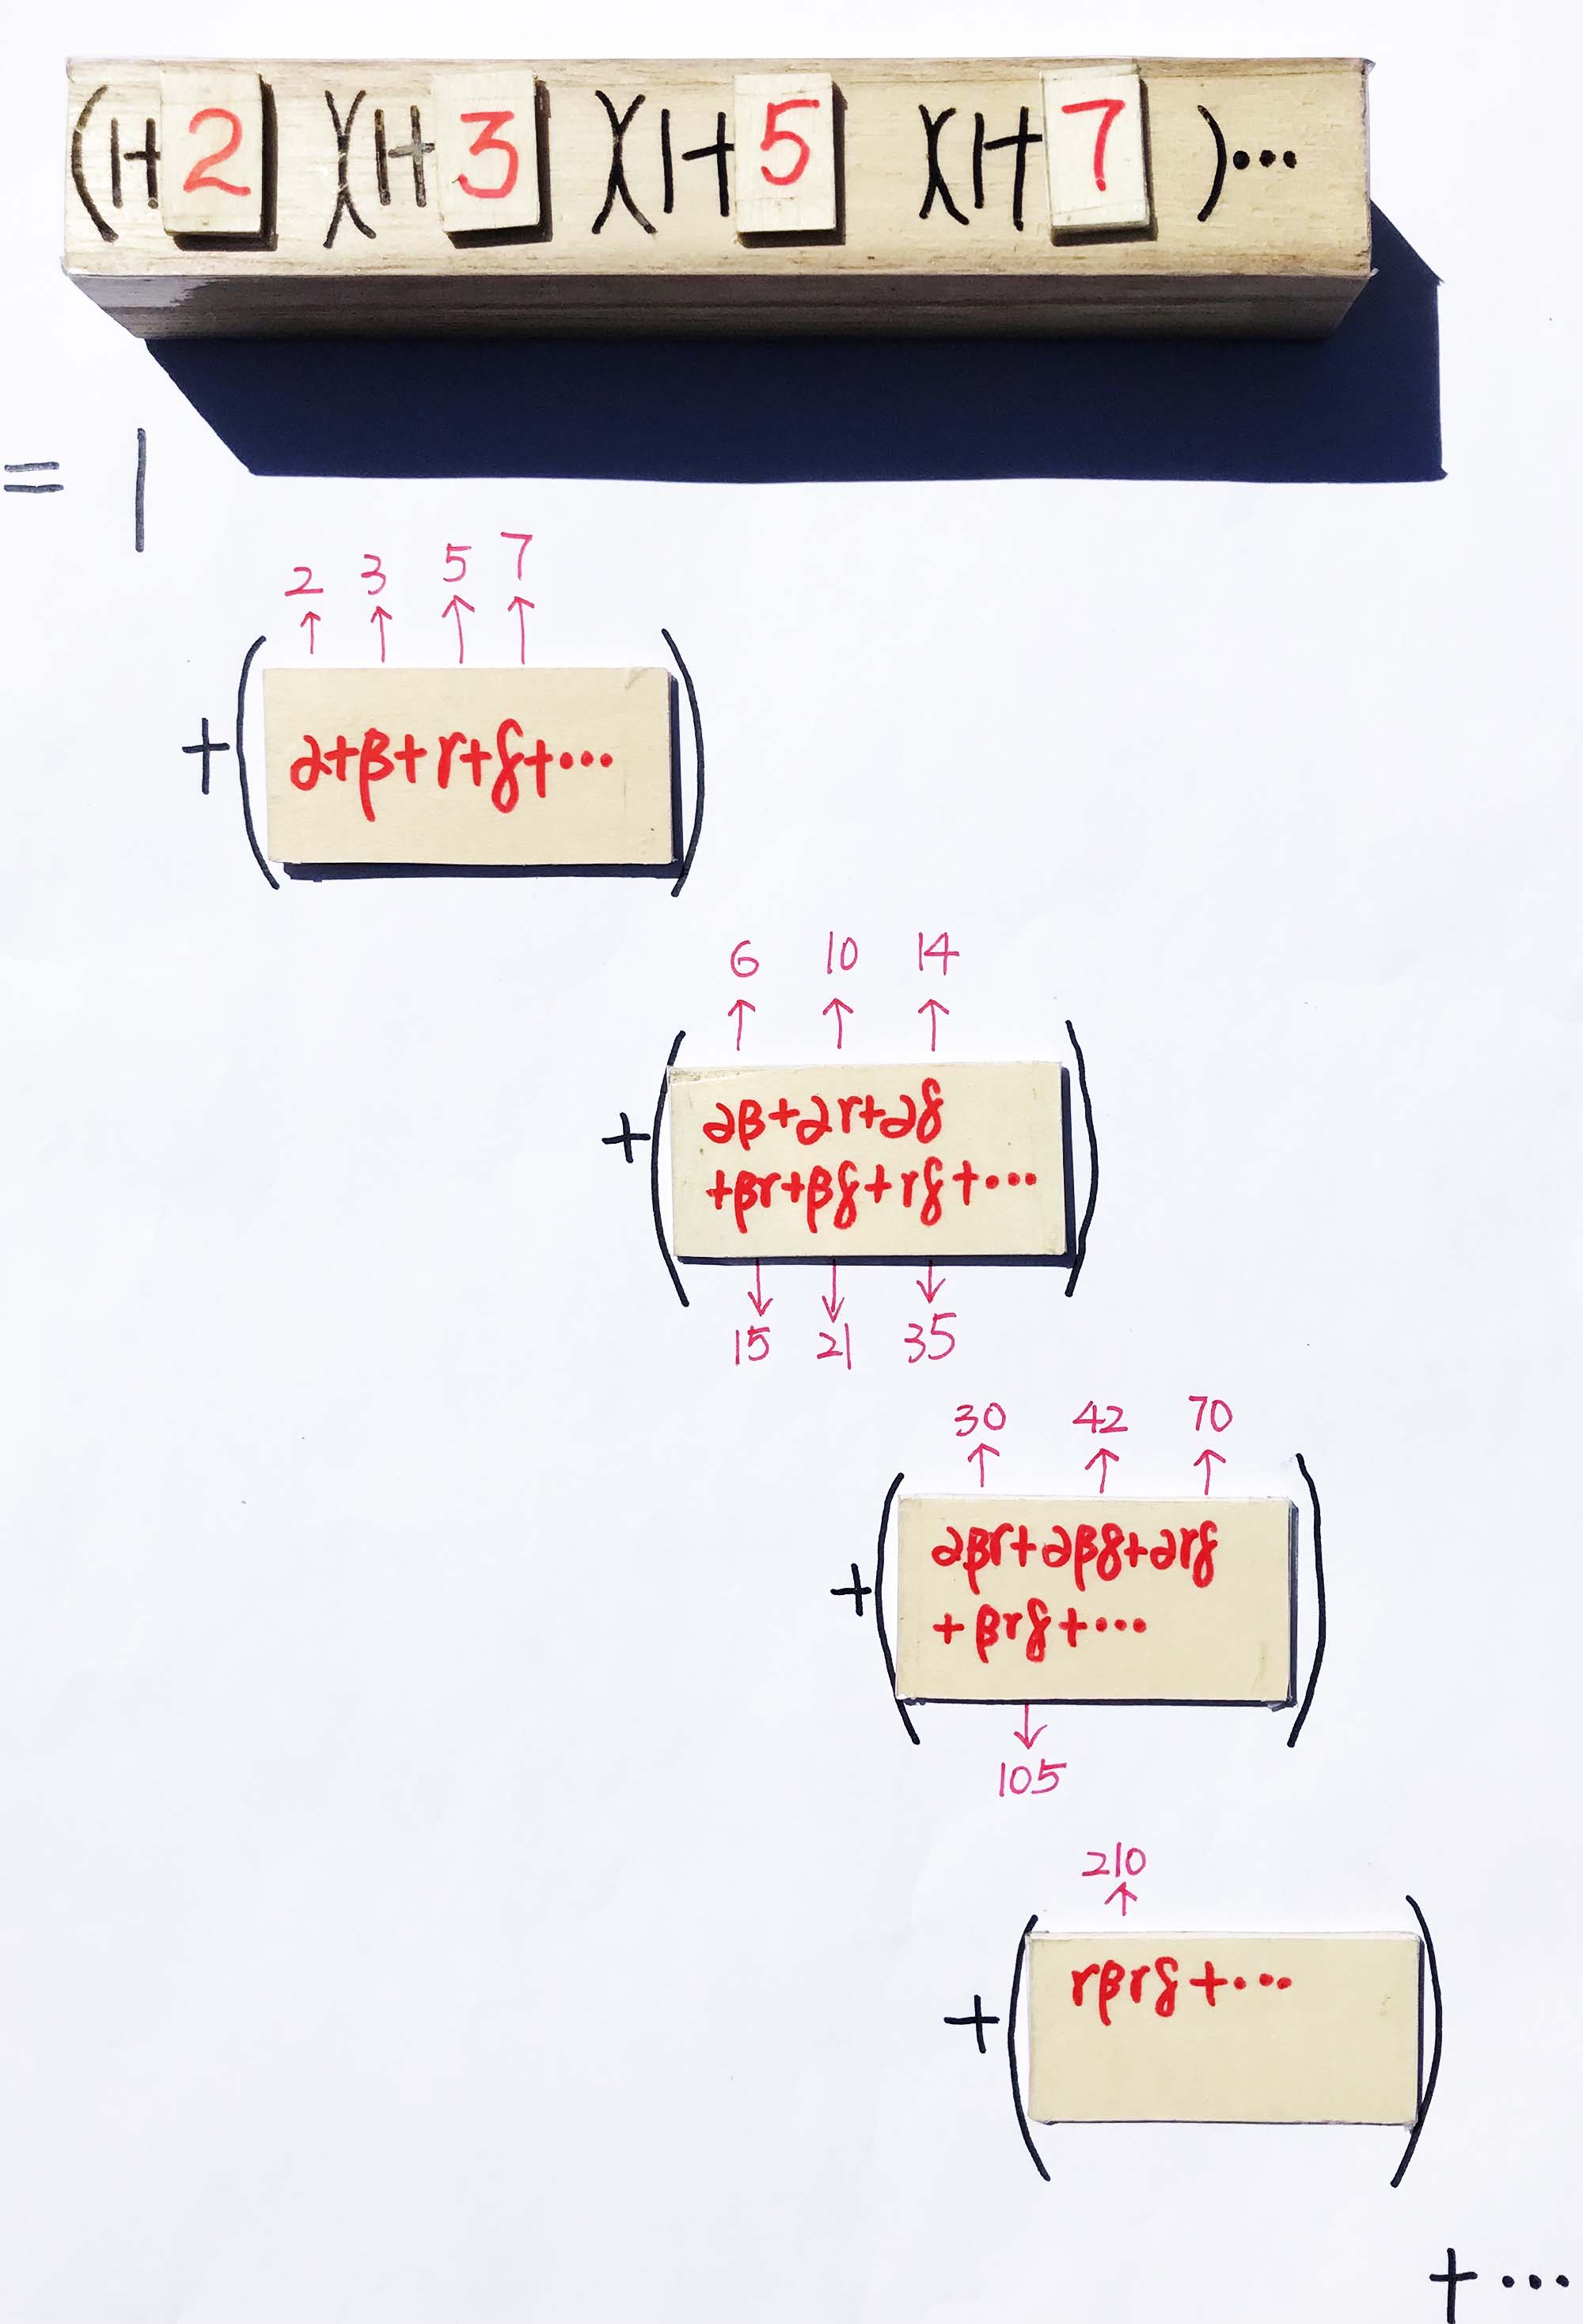 (1+2)(1+3)(1+5)(1+7)...
= 1
2 3 5 7
↑ ↑ ↑ ↑
+(α+β+γ+δ+...)
6 10 14
↑ ↑ ↑
+(αβ+αγ+αδ
+βγ+βδ+γδ+...)
↓ ↓ ↓
15 21 35
30 42 70
↑ ↑ ↑
+(αβγ+αβδ+αγδ
+βγδ+...)
↓
105
210
↑
+(γβγδ+...)
+...